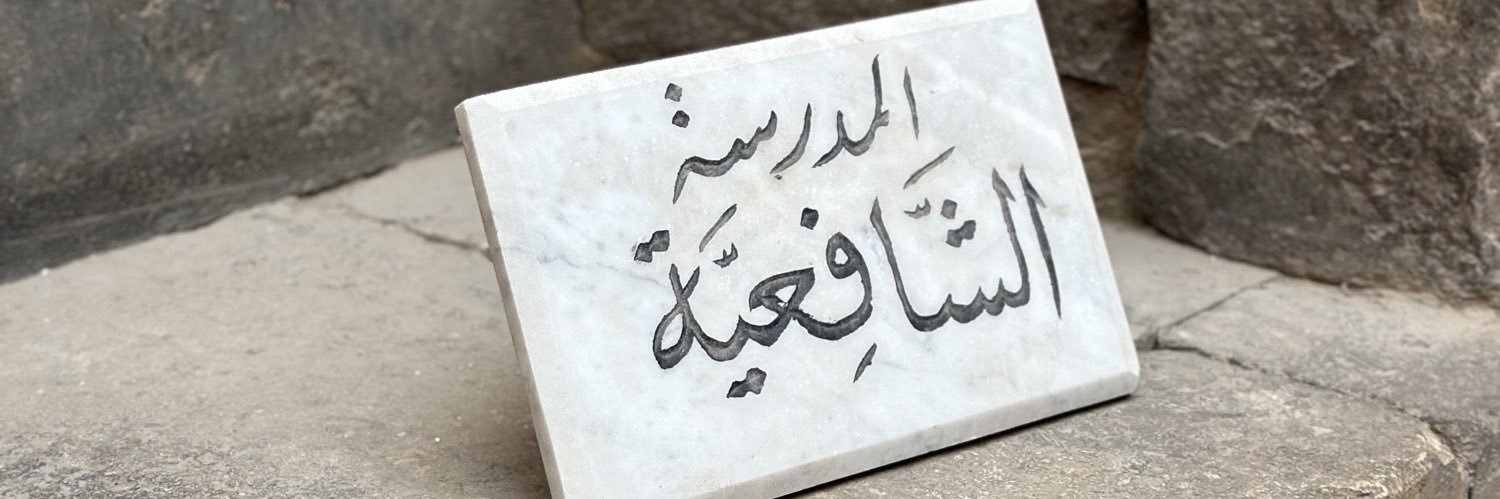 المدرسة
الشَّافِعيَّة